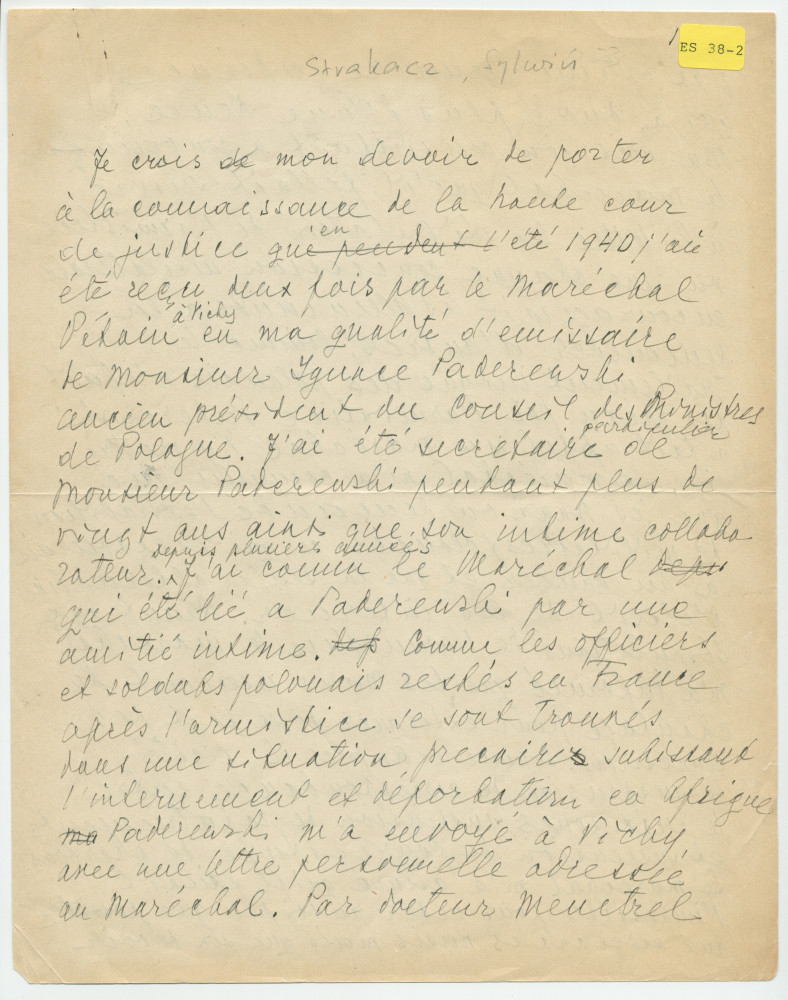 ES 38-2
Strakacz, Sylwin
Je crois de mon devoir de porter
à la connaissance de la haute cour
de justice que en pendant l'été 1940 j'ai
été reçu deux fois par le Maréchal
Pétain à Vichy en ma qualité d'emissaire
de Monsieur Ignace Paderewski
ancien président du Conseil des Ministres
de Pologne. J'ai été secretaire particulier de
Monsieur Paderewski pendant plus de
vingt ans ainsi que son intime collabo
rateur. depuis plusiers années J'ai connu le Maréchal dep
qui été lié a Paderewski par une
amitié intime. dep Comme les officiers
et soldats polonais restés en France
après l'armistice se sont trouvés
dans une situation precaires subissant
l'internement et déportation en Afrique
ma Paderewski m'a envoyé à Vichy
avec une lettre personnelle adressée
au Maréchal. Par docteur Menetrel